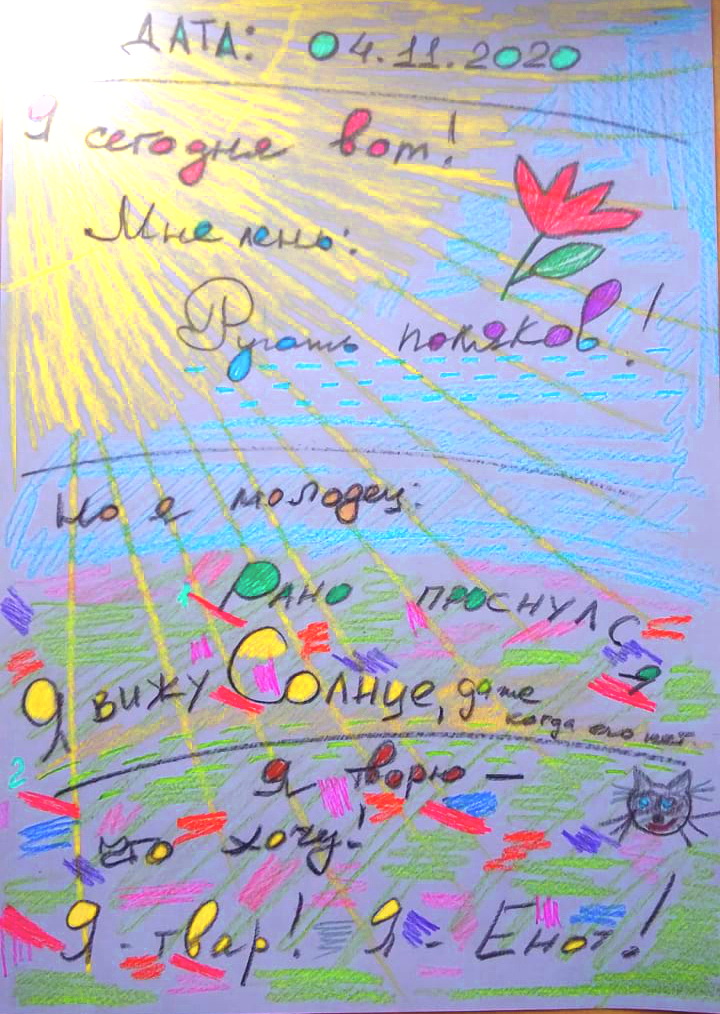 ДАТА: 04.11.2020
Я сегодня вот!
Мне лень:
Ругать поляков!
Но я молодец:
Рано проснулс
я
Я вижу Солнце, даже
когда его нет.
Я творю —
что хочу!
Я - твар! Я - Енот!